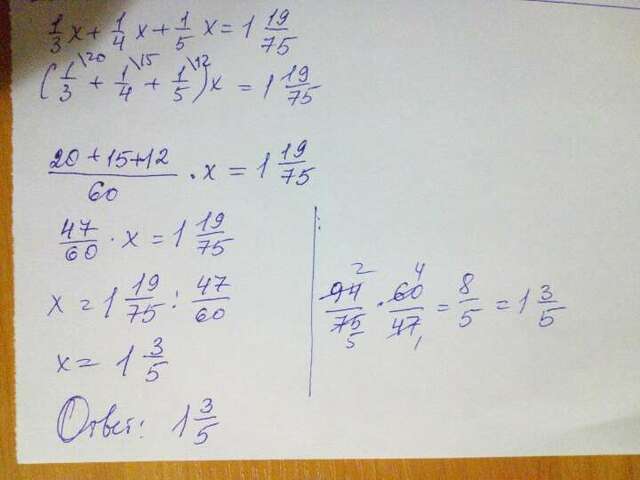 1/3 x + 1/4 x + 1/5 x = 1 19/75
(1/3 \20 + 1/4 \15 + 1/5 \12) x = 1 19/75
20+15+12/60 · x = 1 19/75
47/60 · x = 1 19/75
x = 1 19/75 : 47/60
x = 1 3/5
Ответ: 1 3/5
94 2/75 5 · 60 4/47 1 = 8/5 = 1 3/5